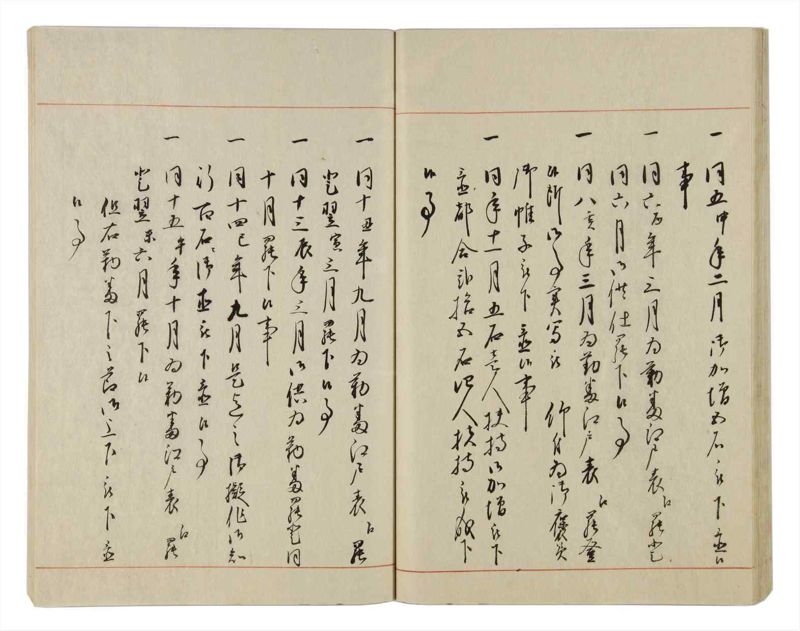 一 同五申年二月 御加増五石被下置候
事
一 同六酉年三月為勤番江戸表江罷登
同六月御供仕罷下候事
一 同八亥年三月為勤番江戸表江罷登
候所御写被 仰付為御褒美
御帷子被下置候事
一 同年十一月五石壱人扶持御加増被下
置都合弐拾五石四人扶持被成下
候事
一 同十丑年九月為勤番江戸表江罷
登翌寅三月罷下候事
一 同十三辰年三月御供為勤番罷登同
十月罷下候事
一 同十四巳年九月是迄之御擬作御知
行百石御直被下置候事
一 同十五午年十月為勤番江戸表江罷
登翌未六月罷下候
但右勤番下之節御上下被下置
候事